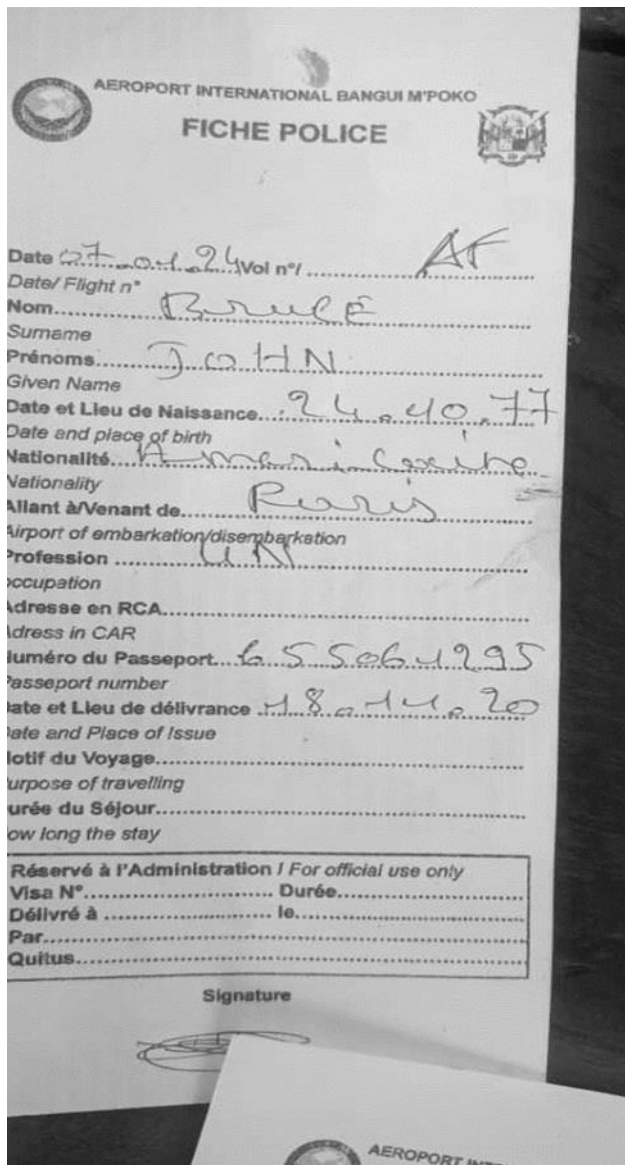 AEROPORT INTERNATIONAL BANGUI M'POKO
FICHE POLICE
Date 07.01.24 Vol n°/ AF
Date/ Flight n°
Nom BRULÉ
Surname
Prénoms JOHN
Given Name
Date et Lieu de Naissance 24.10.77
Date and place of birth
Nationalité Americaine
Nationality
Allant à/Venant de Paris
Airport of embarkation/disembarkation
Profession UN
occupation
Adresse en RCA
Adress in CAR
Numéro du Passeport 655061295
Passeport number
Date et Lieu de délivrance 18.11.20
Date and Place of Issue
Motif du Voyage
Purpose of travelling
Durée du Séjour
How long the stay
Réservé à l'Administration / For official use only
Visa N° Durée
Délivré à le
Par
Quitus
Signature
AEROPORT